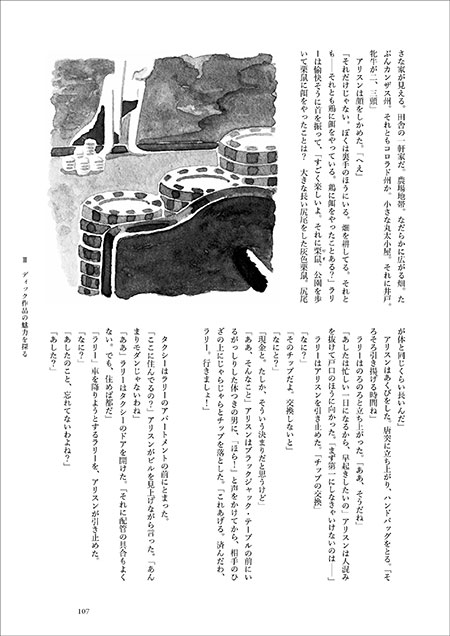 さな家が見える。田舎の一軒家だ。農場地帯。なだらかに広がる畑。た
ぶんカンザス州。それともコロラド州か。小さな丸太小屋。それに井戸。
牝牛が二、三頭」
アリスンは顔をしかめた。「へえ」
「それだけじゃない。ぼくは裏手のほうにいる。畑を耕してる。それと
も――それとも鶏に餌をやっている。鶏に餌をやったことある？」ラリ
ーは愉快そうに首を振って、「すごく楽しいよ。それに栗鼠。公園を歩
いて栗鼠に餌をやったことは？　大きな長い尻尾をした灰色栗鼠。尻尾
が体と同じくらい長いんだ」
アリスンはあくびをした。唐突に立ち上がり、ハンドバッグをとる。「そ
ろそろ引き揚げる時間ね」
ラリーはのろのろと立ち上がった。「ああ、そうだね」
「あしたは忙しい一日になるから、早起きしたいの」アリスンは人混み
を抜けて戸口のほうに向かった。「まず第一にしなきゃいけないのは――」
ラリーはアリスンを引き止めた。「チップの交換」
「なに？」
「そのチップだよ。交換しないと」
「なにと？」
「現金と。たしか、そういう決まりだと思うけど」
「ああ、そんなこと」アリスンはブラックジャック・テーブルの前にい
るがっしりした体つきの男に、「ほら！」と声をかけてから、相手のひ
ざの上にじゃらじゃらとチップを落とした。「これあげる。済んだわ、
ラリー。行きましょ！」
タクシーはラリーのアパートメントの前にとまった。
「ここに住んでるの？」アリスンがビルを見上げながら言った。「あん
まりモダンじゃないわね」
「ああ」ラリーはタクシーのドアを開けた。「それに配管の具合もよく
ない。でも、住めば都だ」
「ラリー」車を降りようとするラリーを、アリスンが引き止めた。
「なに？」
「あしたのこと、忘れてないわよね？」
「あした？」
Ⅲ　ディック作品の魅力を探る
107